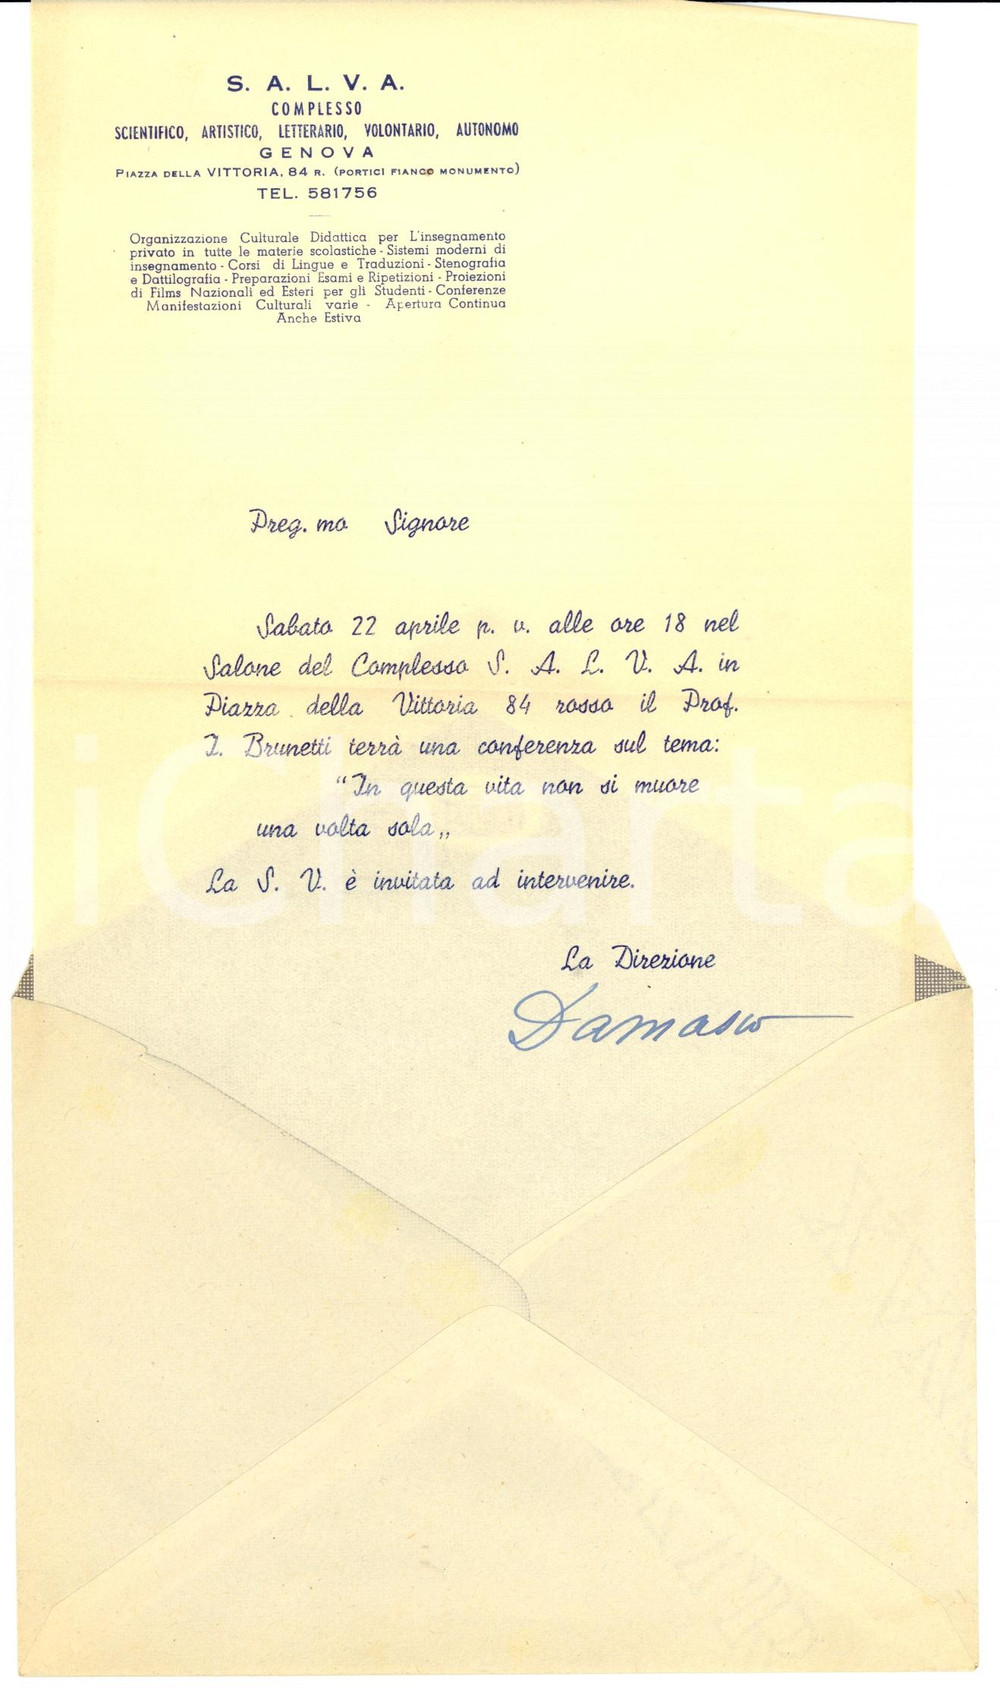 S. A. L. V. A.
COMPLESSO
SCIENTIFICO, ARTISTICO, LETTERARIO, VOLONTARIO, AUTONOMO
GENOVA
PIAZZA DELLA VITTORIA, 84 R. (PORTICI FIANCO MONUMENTO)
TEL. 581756
Organizzazione Culturale Didattica per L'insegnamento
privato in tutte le materie scolastiche - Sistemi moderni di
insegnamento - Corsi di Lingue e Traduzioni - Stenografia
e Dattilografia - Preparazioni Esami e Ripetizioni - Proiezioni
di Films Nazionali ed Esteri per gli Studenti - Conferenze
Manifestazioni Culturali varie - Apertura Continua
Anche Estiva
Preg.mo Signore
Sabato 22 aprile p. v. alle ore 18 nel
Salone del Complesso S. A. L. V. A. in
Piazza della Vittoria 84 rosso il Prof.
I. Brunetti terrà una conferenza sul tema:
"In questa vita non si muore
una volta sola„
La S. V. è invitata ad intervenire.
La Direzione
Damasco
iCharta